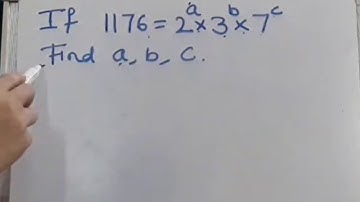 If 1176 = 2ᵃ × 3ᵇ × 7ᶜ
Find a, b, c.